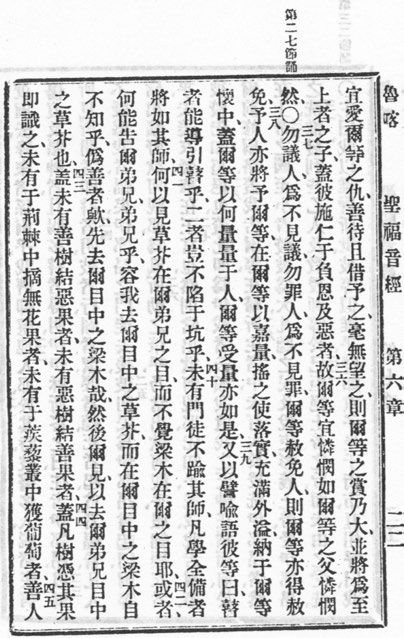 第二七節誦
魯喀 聖福音經 第六章 二二
宜愛爾等之仇善待且借予之毫無望之則爾等之賞乃大並將爲至
三六
上者之子蓋彼施仁于負恩及惡者故爾等宜憐憫如爾等之父憐憫
三七
然〇勿議人爲不見議勿罪人爲不見罪爾等赦免人則爾等亦得赦
三八
免予人亦將予爾等在爾等以嘉量搖之使落實充滿外溢納于爾等
三九
懷中蓋爾等以何量量于人爾等受量亦如是又以譬喻語彼等曰瞽
四十
者能導引瞽乎二者豈不陷于坑乎未有門徒不踰其師凡學全備者
四一
將如其師何以見草芥在爾弟兄之目而不覺梁木在爾之目耶或者
四二
何能告爾弟兄弟兄乎容我去爾目中之草芥而在爾目中之梁木自
不知乎僞善者歟先去爾目中之梁木哉然後爾見以去爾弟兄目中
四三
之草芥也蓋未有善樹結惡果者未有惡樹結善果者蓋凡樹憑其果
四四
即識之未有于荊棘中摘無花果者未有于蒺藜叢中獲葡萄者善人
四五